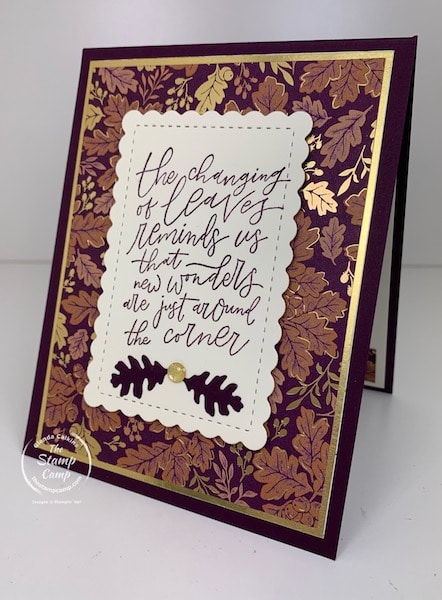 the changing
of leaves
reminds us
that
new wonders
are just around
the corner
The
Stamp
Camp